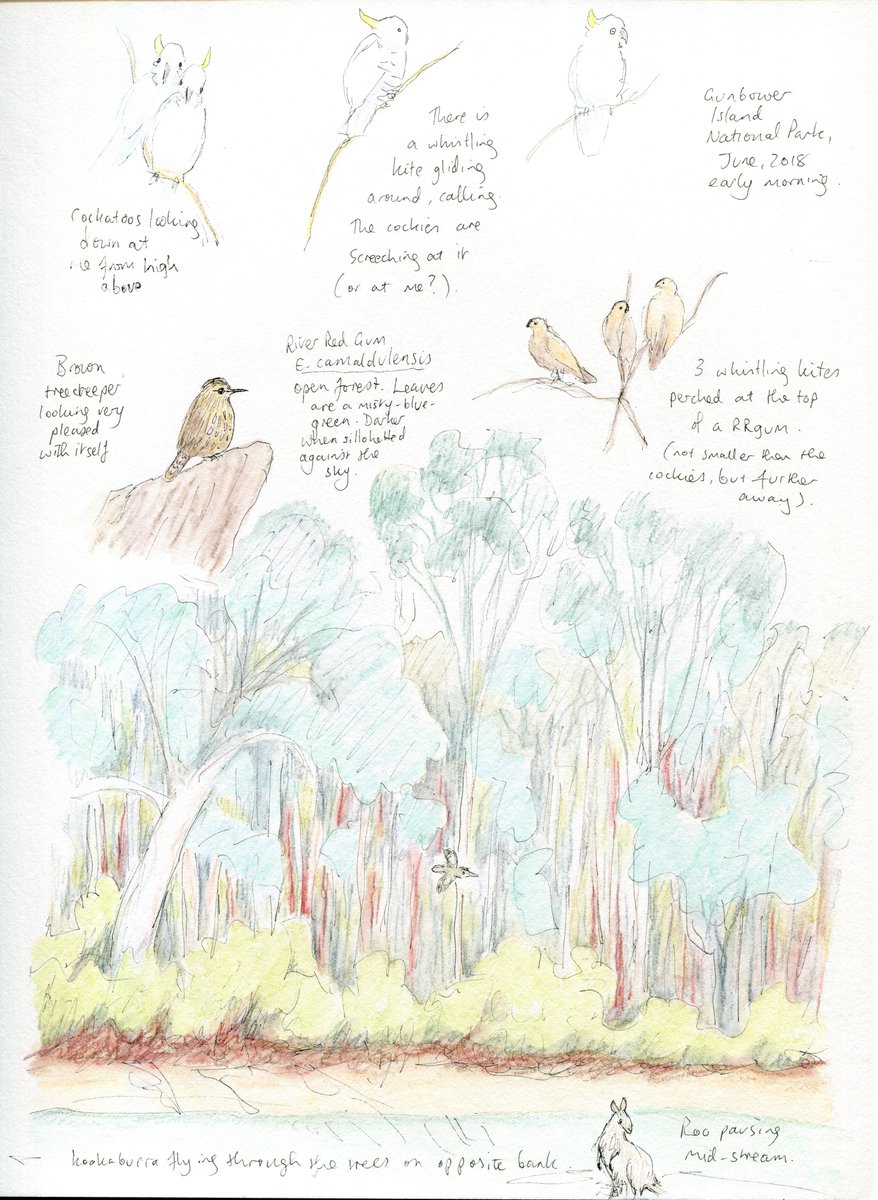 Gunbower
Island
National Park,
June, 2018
early morning.
Cockatoos looking
down at
me from high
above
There is
a whistling
kite gliding
around, calling.
The cockies are
screeching at it
(or at me?).
Brown
treecreeper
looking very
pleased
with itself
River Red Gum
E. camaldulensis
open forest. Leaves
are a misty-blue-
green. Darker
when sillohetted
against the
sky.
3 whistling kites
perched at the top
of a RRgum.
(not smaller than the
cockies, but further
away).
kookaburra flying through the trees on opposite bank.
Roo pausing
mid-stream.